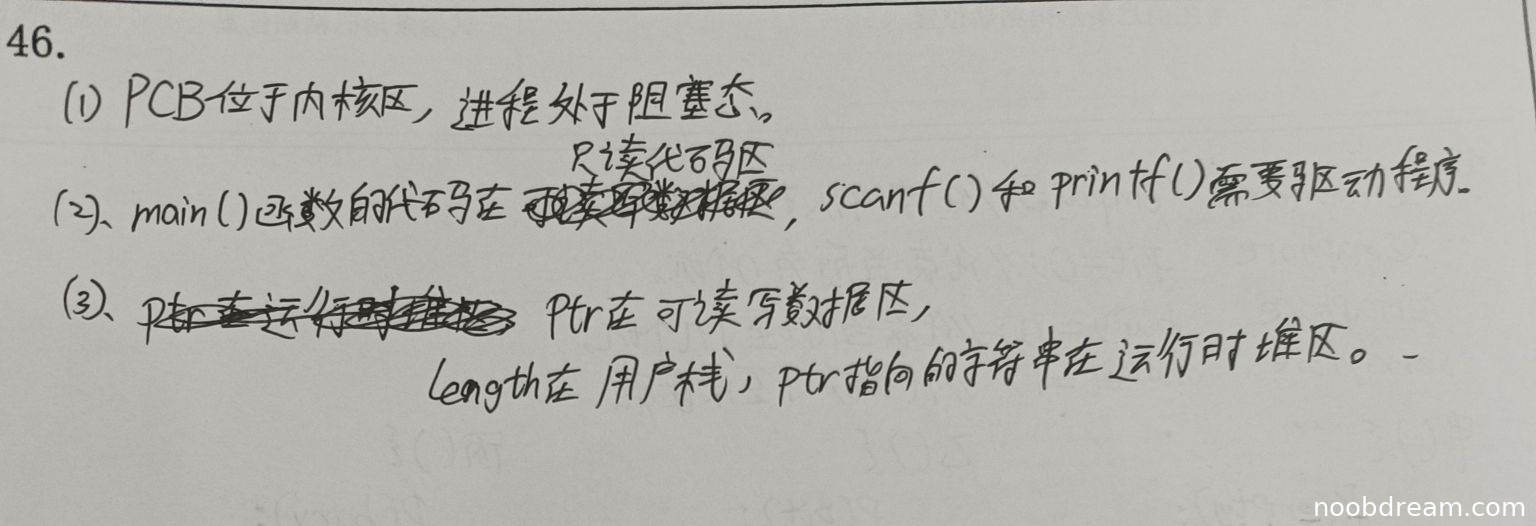 46.
(1) PCB位于内核区, 进程处于阻塞态。
只读代码区
(2)、main()函数的代码在 , scanf()和printf()需要驱动程序.
(3)、 ptr在可读写数据区,
length在用户栈, ptr指向的字符串在运行时堆区。
noobdream.com